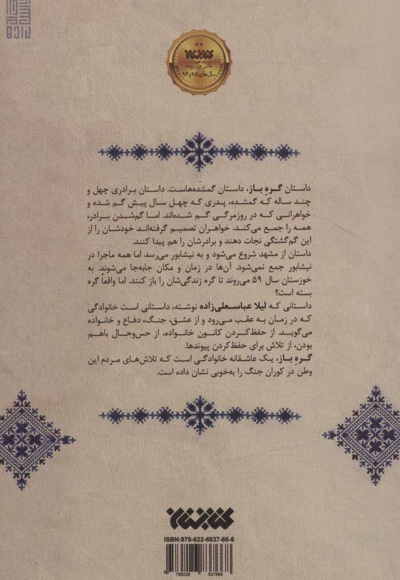 کتابستان
داستان گره باز، داستان گمشده‌هاست. داستان برادری چهل و
چند ساله که گمشده، پدری که چهل سال پیش گم شده و
خواهرانی که در روزمرگی گم شده‌اند. اما گم‌شدن برادر،
همه را جمع می‌کند. خواهران تصمیم گرفته‌اند خودشان را از
این گم‌گشتگی نجات دهند و برادرشان را هم پیدا کنند.
داستان از مشهد شروع می‌شود و به نیشابور می‌رسد اما همه ماجرا در
نیشابور جمع نمی‌شود. آن‌ها در زمان و مکان جابه‌جا می‌شوند. به
خوزستان سال ۵۹ می‌روند تا گره زندگی‌شان را باز کنند. اما واقعاً گره
بسته است؟
داستانی که لیلا عباسعلی‌زاده نوشته، داستانی است خانوادگی
که در زمان به عقب می‌رود و از عشق، جنگ، دفاع و خانواده
می‌گوید. از حفظ‌کردن کانون خانواده، از حس‌وحال باهم
بودن، از تلاش برای حفظ‌کردن پیوندها.
گره باز، یک عاشقانه خانوادگی است که تلاش‌های مردم این
وطن در کوران جنگ را به‌خوبی نشان داده است.
کتابستان
ISBN:978-622-6837-66-8